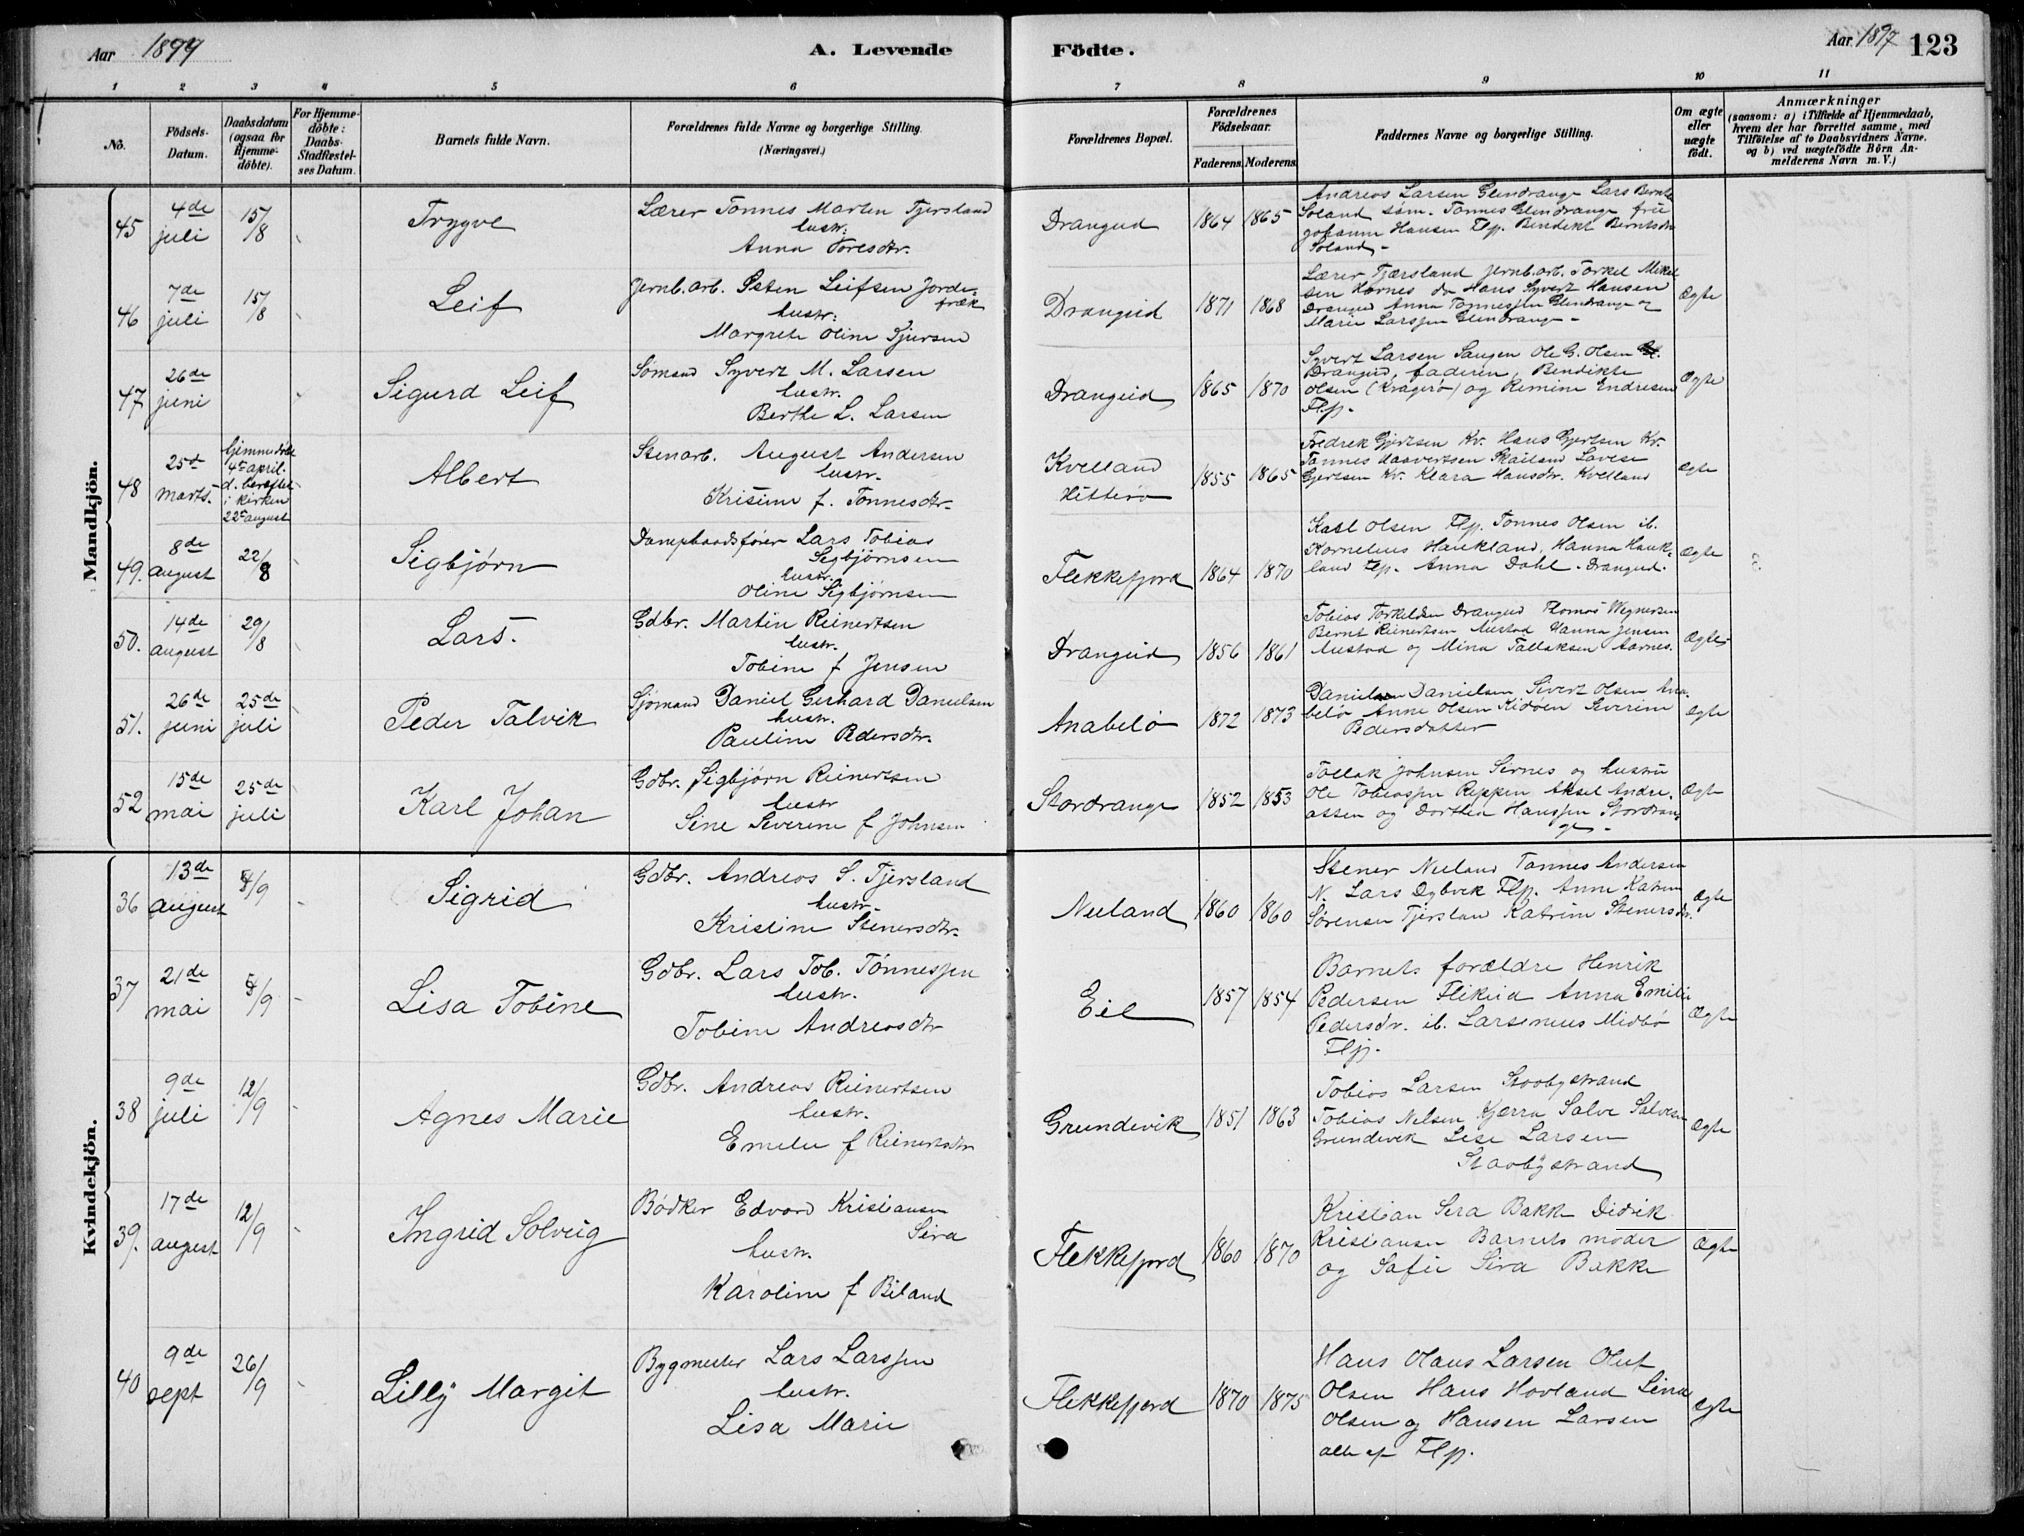 Aar 1897
A. Levende
Födte.
Aar 1897 123
1 2 3 4 5 6 7 8 9 10 11
No.
Födsels-
Datum.
Daabsdatum
(ogsaa for
Hjemme-
döbte).
For Hjemme-
döbte:
Daabs-
Stadfæstel-
ses Datum.
Barnets fulde Navn.
Forældrenes fulde Navne og borgerlige Stilling.
(Næringsvei.)
Forældrenes Bopæl.
Forældrenes
Födselsaar.
Faderens. Moderens.
Faddernes Navne og borgerlige Stilling.
Om ægte
eller
uægte
födt.
Anmærkninger
(saasom: a) i Tilfælde af Hjemmedaab,
hvem der har forrettet samme, med
Tilföielse af to Daabsvidners Navne.
og b) ved uægtefödte Börn An-
melderens Navn m. V.)
Mandkjön.
45 4de juli 15/8 Trygve
Lærer Tønnes Marten Tjersland
hustr.
Anna Toresdtr.
Drangeid 1864 1865
Andreas Larsen Glendrange Lars Bernts
Soland søm. Tønnes Glendrange fru
Johanne Hansen Flp. Bendikt Berntsdtr
Soland -
46 7de juli 15/8 Leif
Jernb.arb. Peten Leifsen Jorde-
bræk
hustr:
Margrete Oline Sjursen
Drangeid 1871 1868
Lærer Tjærsland Jernb.arb. Torkel Mikel
sen Hornes do Hans Syvert Hansen
Drangeid Anna Tønnesjen Glendrange og
Marie Larsjen Glendrange -
Ægte
47 26de juni Sigurd Leif
Sømand Syvert M. Larsen
hustr.
Berthe L. Larsen
Drangeid 1865 1870
Syvert Larsen Saugen Ole G. Olsen
Drangeid, faderen, Bendikte
Olsen (Kragerø) og Remine Endresen
Flp.
Ægte
48 25de marts. hjemmedøbt
4de april.
d. beræftet
i kirken
22de august
Albert
Stenarb. August Andersen
hustr.
Kristine f. Tønnesdtr.
Kvelland
Hitterø
1855 1865
Fredrek Gjertsen Kv. Hans Gjertsen Kv.
Tønnes Haavertsen Skailand Lovise
Gjertsen Kv. Klara Hansdtr. Kvelland
ægte
49. 8de august 22/8 Sigbjørn
Dampbaadsfører Lars Tobias
Sigbjørnsen
hustr.
Oline Sigbjørnsen
Flekkefjord 1864 1870
Karl Olsen Flp. Tønnes Olsen ib.
Kornelius Haukland, Hanna Hauk-
land Flp. Anna Dahl. Drangeid.
Ægte
50. 14de august 29/8 Lars.
Gdbr. Martin Reinertsen
hustr.
Tobine f Jensen
Drangeid 1856 1861
Tobias Torkeldsen Drangeid Thomas Wegnersen
Bernt Reinertsen Austad Hanna Jensen
Austad og Mina Tallaksen Aarnes.
Ægte
51. 26de juni 25de juli Peder Talvik
Sjømand Daniel Gerhard Danielsen
hustr.
Pauline Pedersdtr.
Anabelø 1872 1873
Daniel Danielsen Sivert Olsen Ana
belø Anne Olsen Kidøen Severine
Pedersdatter
ægte
52 15de mai 25de juli Karl Johan
Gdbr. Sigbjørn Reinertsen
hustr
Sine Severine f Johnsen
Stordrange 1852 1853
Tollak Johnsen Sirnes og hustru
Ole Tobiasjen Reppen Aksel Andre-
assen og Dorthea Hansjen Stordran
ge -
Ægte
Kvindekjön.
36 13de august 5/9 Sigrid
Gdbr. Andreas S. Tjersland
hustr.
Kristine Stenersdtr.
Nuland 1860 1860
Stener Nuland Tønnes Andersen
N. Lars Dybvik Flp. Anne Katrine
Sørensen Tjersland Katrine Stenersdtr.
Ægte
37 21de mai 5/9 Lisa Tobine
Gdbr. Lars Tob. Tønnesjen
hustr.
Tobine Andreasdtr
Eie 1857 1854
Barnets forældre Henrik
Pedersen Flikeid Anna Emilie
Pedersdr. ib. Larsenius Midbø
Flp.
Ægte
38 9de juli 12/9 Agnes Marie
Gdbr. Andreas Reinertsen
hustr.
Emelie f Reinertsdtr
Grundevik 1851 1863
Tobias Larsen Stoobystrand
Tobias Nilsen Kjærra Salve Salvesen
Grundevik Lise Larsen
Stoobystrand
Ægte
39. 17de august 12/9 Ingrid Solveig
Bødker Edvard Kristiansen
Sira
hustr.
Karoline f Biland
Flekkefjord 1860 1870
Kristian Sira Bakke Didrik
Kristiansen Barnets moder
og Safie Sira Bakke
Ægte
40 9de sept 26/9 Lilly Margit
Bygmester Lars Larsjen
hustr.
Lisa Marie
Flekkefjord 1870 1875
Hans Olaus Larsen Oluf
Olsen Hans Hovland Lina
Olsen og Hansen Larsen
alle af Flp.
Ægte